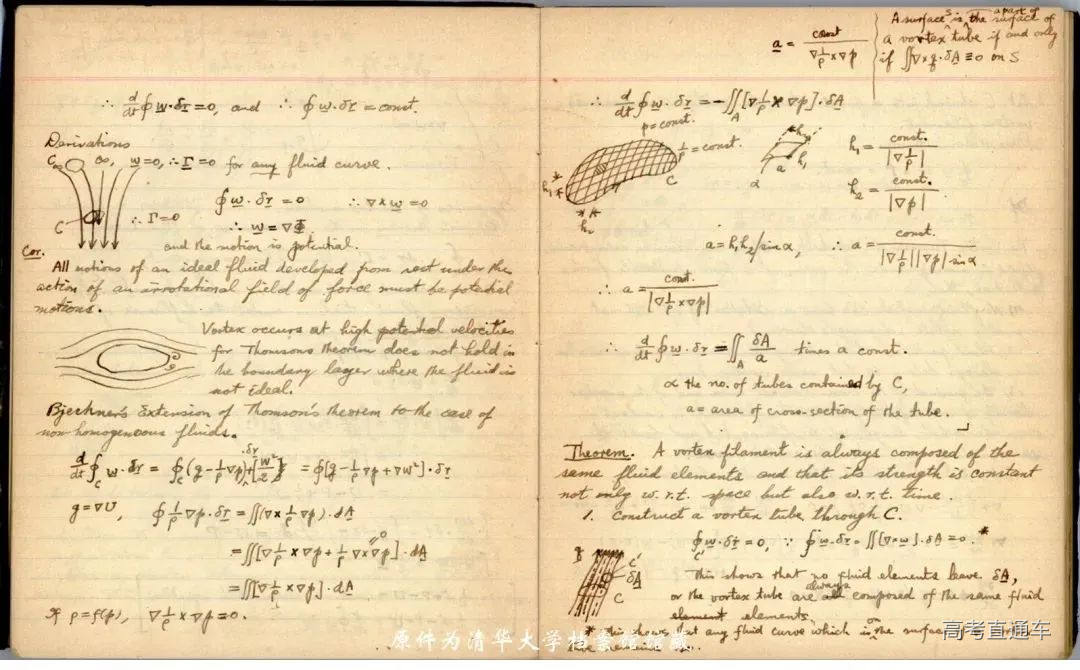 ∴ d/dt ∮ w·δr = 0, and ∴ ∮ w·δr = const.
Derivations
C∞ ∞, w=0, ∴ Γ=0 for any fluid curve.
∮ w·δr = 0 ∴ ∇×w = 0
C ∴ Γ=0 ∴ w = ∇Φ
and the motion is potential.
Cor.
All motions of an ideal fluid developed from rest under the
action of an irrotational field of force must be potential
motions.
Vortex occurs at high potential velocities
for Thomsons theorem does not hold in
the boundary layer where the fluid is
not ideal.
Bjerkner's Extension of Thomson's theorem to the case of
non-homogeneous fluids.
d/dt ∮_C w·δr = ∮_C (g - 1/ρ ∇p)·δr + [w²/2] = ∮[g - 1/ρ ∇p + ∇w²]·δr
g = ∇U, ∮ 1/ρ ∇p·δr = ∬(∇× 1/ρ ∇p)·dA
= ∬[∇ 1/ρ × ∇p + 1/ρ ∇×∇p]·dA
0
= ∬[∇ 1/ρ × ∇p]·dA
If ρ = f(p), ∇ 1/ρ × ∇p = 0.
a = const / ∇ 1/ρ × ∇p
A surface S is a part of the surface of
a vortex tube if and only
if ∬∇×q·δA ≡ 0 on S
∴ d/dt ∮ w·δr = -∬_A [∇ 1/ρ × ∇p]·δA
p = const.
1/ρ = const.
h₁ = const. / |∇ 1/ρ|
h₂ = const. / |∇p|
C
h₁
h₂
h₂
h₁
a
α
a = h₁h₂/sin α, ∴ a = const. / |∇ 1/ρ||∇p| sin α
∴ a = const. / |∇ 1/ρ × ∇p|
∴ d/dt ∮ w·δr = ∬_A δA/a times a const.
α the no. of tubes contained by C,
a = area of cross-section of the tube.
Theorem. A vortex filament is always composed of the
same fluid elements and that its strength is constant
not only w.r.t. space but also w.r.t. time.
1. Construct a vortex tube through C.
∮_C' w·δr = 0, ∵ ∮ w·δr = ∬[∇×w]·δA = 0. *
C'
δA
C
This shows that no fluid elements leave δA,
or the vortex tube are always composed of the same fluid
elements.
* This shows that any fluid curve which is on the surface
原件为清华大学档案馆馆藏
高考直通车